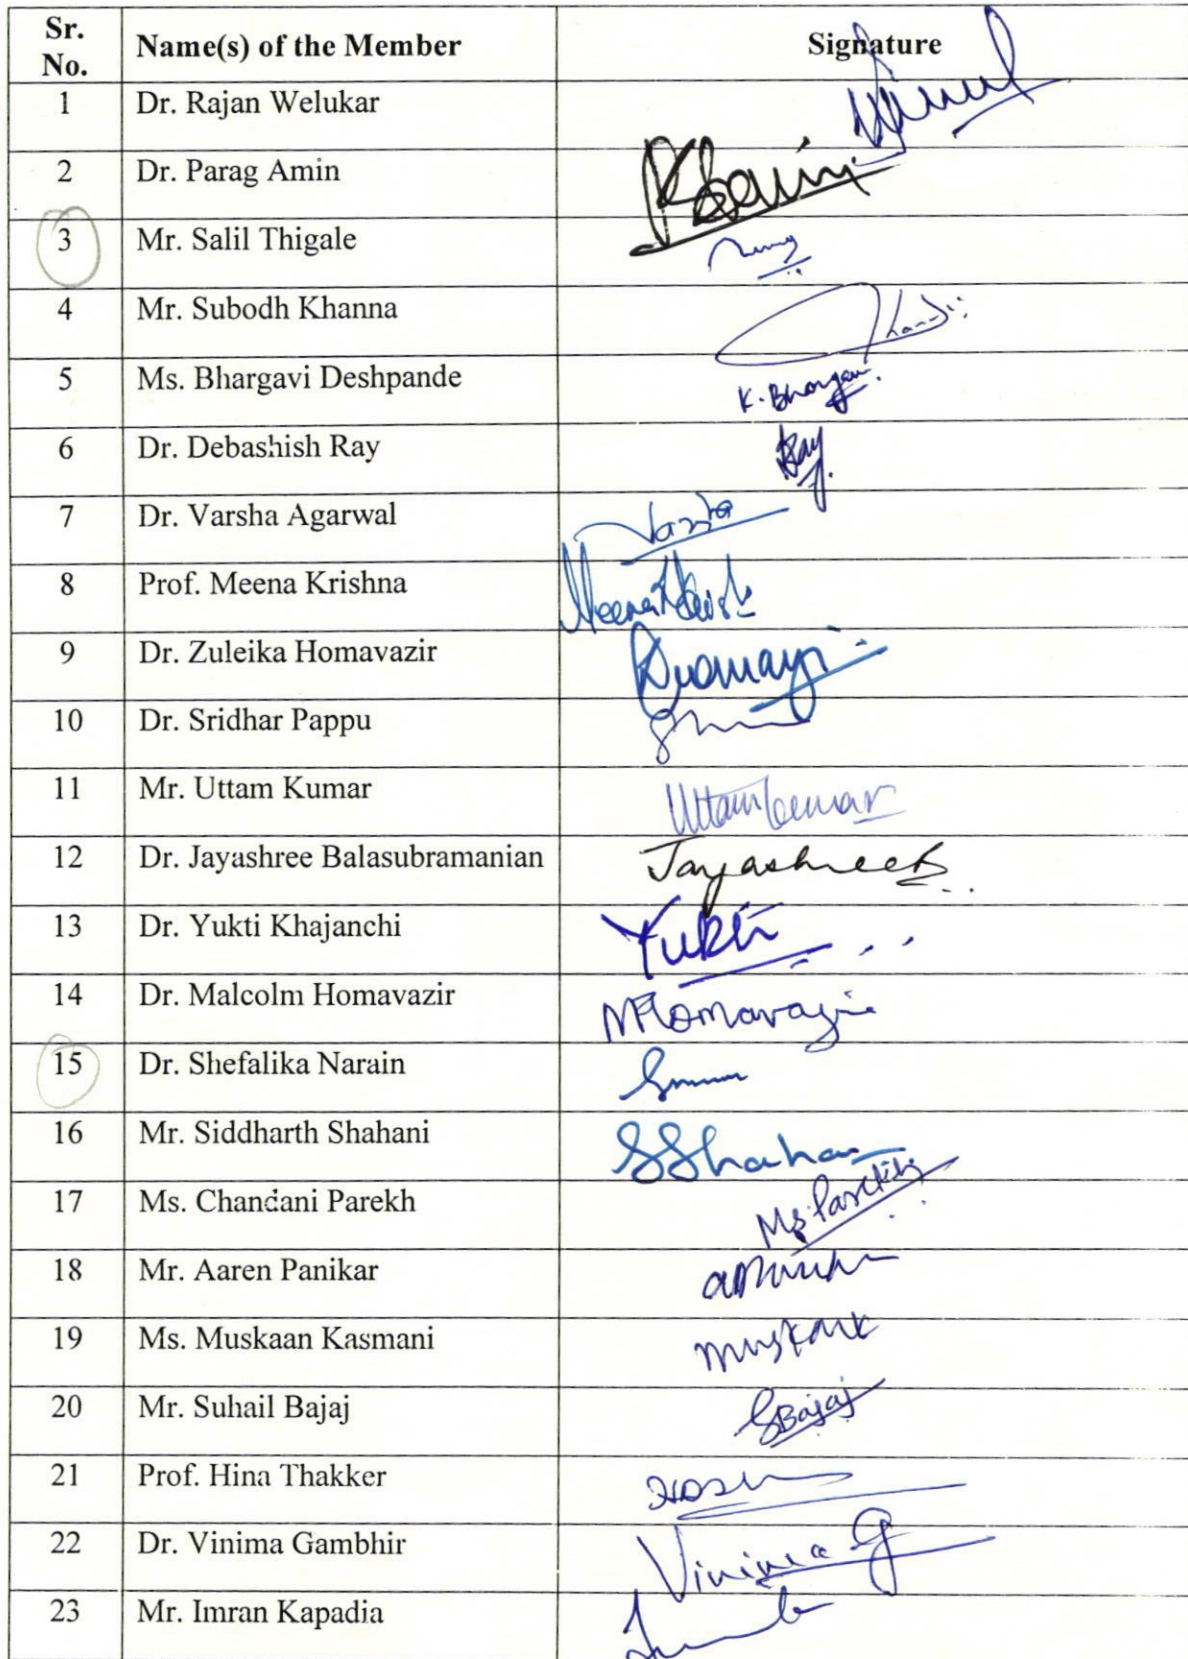 Sr. No. Name(s) of the Member Signature
1 Dr. Rajan Welukar
2 Dr. Parag Amin
3 Mr. Salil Thigale
4 Mr. Subodh Khanna
5 Ms. Bhargavi Deshpande K. Bhargavi
6 Dr. Debashish Ray Ray
7 Dr. Varsha Agarwal Varsha
8 Prof. Meena Krishna
9 Dr. Zuleika Homavazir
10 Dr. Sridhar Pappu
11 Mr. Uttam Kumar Uttam Kumar
12 Dr. Jayashree Balasubramanian Jayashree B
13 Dr. Yukti Khajanchi Yukti
14 Dr. Malcolm Homavazir MHomavazir
15 Dr. Shefalika Narain
16 Mr. Siddharth Shahani SShahani
17 Ms. Chandani Parekh Ms. Parekh
18 Mr. Aaren Panikar
19 Ms. Muskaan Kasmani MuskanK
20 Mr. Suhail Bajaj SBajaj
21 Prof. Hina Thakker
22 Dr. Vinima Gambhir Vinima G
23 Mr. Imran Kapadia